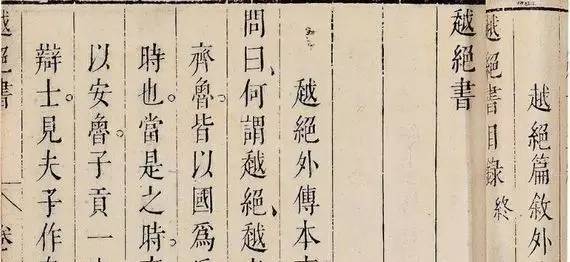 越絕篇敘外
越絕書目錄 終
越絕書
越絕外傳本
問曰、何謂越絕、越
齊魯皆以國爲
時也。當是之時
以安魯。子貢一
辯士。見夫子作
越絕書 卷